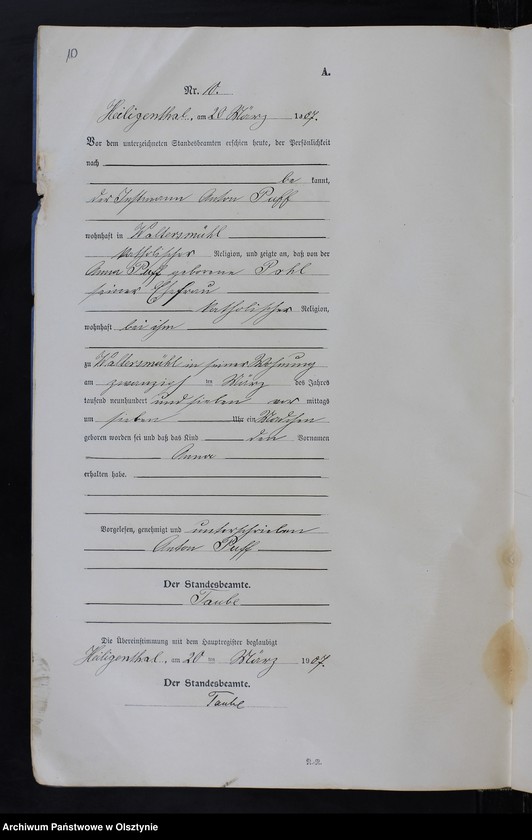 10
A.
Nr. 10.
Heiligenthal, am 20 März 1907.
Vor dem unterzeichneten Standesbeamten erschien heute, der Persönlichkeit
nach
be kannt,
der Instmann Anton Puff
wohnhaft in Waltersmühl
katholischer Religion, und zeigte an, daß von der
Anna Puff geborene Pohl
seiner Ehefrau
katholischer Religion,
wohnhaft bei ihm
zu Waltersmühl in seiner Wohnung
am zwanzigs ten März des Jahres
tausend neunhundert und sieben vor mittags
um sieben Uhr ein Mädchen
geboren worden sei und daß das Kind den Vornamen
Anna
erhalten habe.
Vorgelesen, genehmigt und unterschrieben
Anton Puff
Der Standesbeamte.
Taube
Die Übereinstimmung mit dem Hauptregister beglaubigt
Heiligenthal, am 20 ten März 1907.
Der Standesbeamte.
Taube
Archiwum Państwowe w Olsztynie